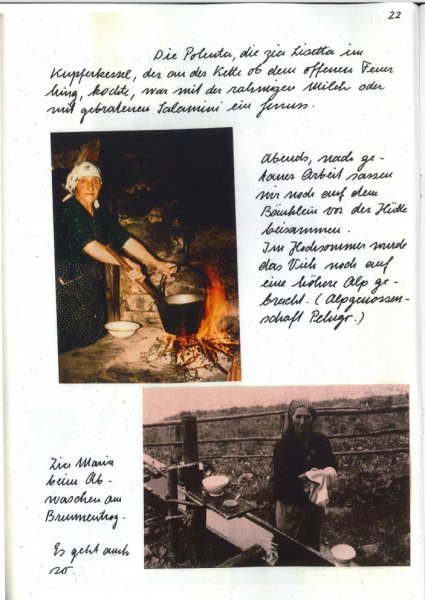 22
Die Polenta, die zia Lisetta im
Kupferkessel, der an der Kette ob dem offenen Feuer
hing, kochte, war mit der rahmigen Milch oder
mit gebratenen Salamini ein Genuss.
Abends, nach ge-
taner Arbeit sassen
wir noch auf dem
Bänklein vor der Hütte
beisammen.
Im Hochsommer wurde
das Vieh noch auf
eine höhere Alp ge-
bracht. (Alpgenossen-
schaft Pelugr.)
Zia Maria
beim Ab-
waschen am
Brunnentrog.
Es geht auch
so.